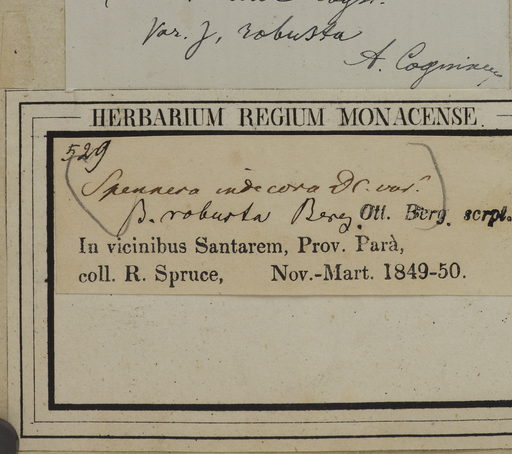 Var. γ, robusta
A. Cogniaux
HERBARIUM REGIUM MONACENSE.
529
Spennera indecora DC. var.
β. robusta Berg. Ott. Berg. scrpt.
In vicinibus Santarem, Prov. Parà,
coll. R. Spruce, Nov.-Mart. 1849-50.